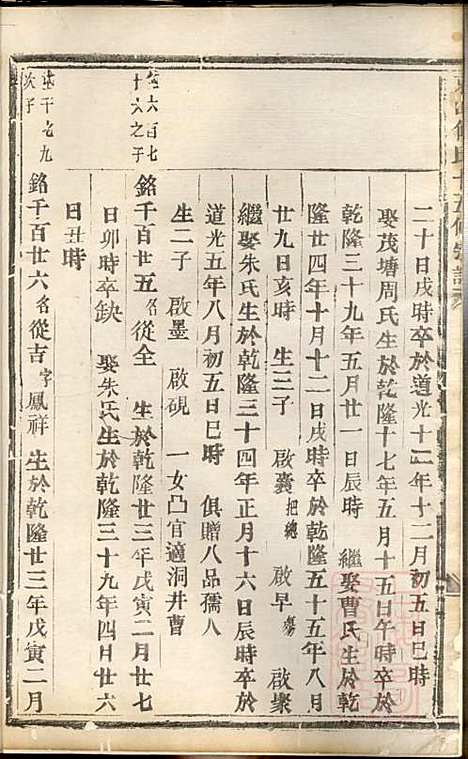 二十日戌時卒於道光十二年十二月初五日巳時
娶茂塘周氏生於乾隆十七年五月十五日午時卒於
乾隆三十九年五月廿一日辰時 繼娶曹氏生於乾
隆廿四年十月十二日戌時卒於乾隆五十五年八月
廿九日亥時 生三子 啟囊把總 啟早殤 啟衆
繼娶朱氏生於乾隆三十四年正月十六日辰時卒於
道光五年八月初五日巳時 俱贈八品孺人
生二子 啟墨 啟硯 一女凸官適洞井曹
六百七十六之子
銘千百廿五名從全 生於乾隆廿三年戊寅二月廿七
日卯時卒缺 娶朱氏生於乾隆三十九年四日廿六
日丑時
千七九次子
銘千百廿六名從吉字鳳祥 生於乾隆廿三年戊寅二月